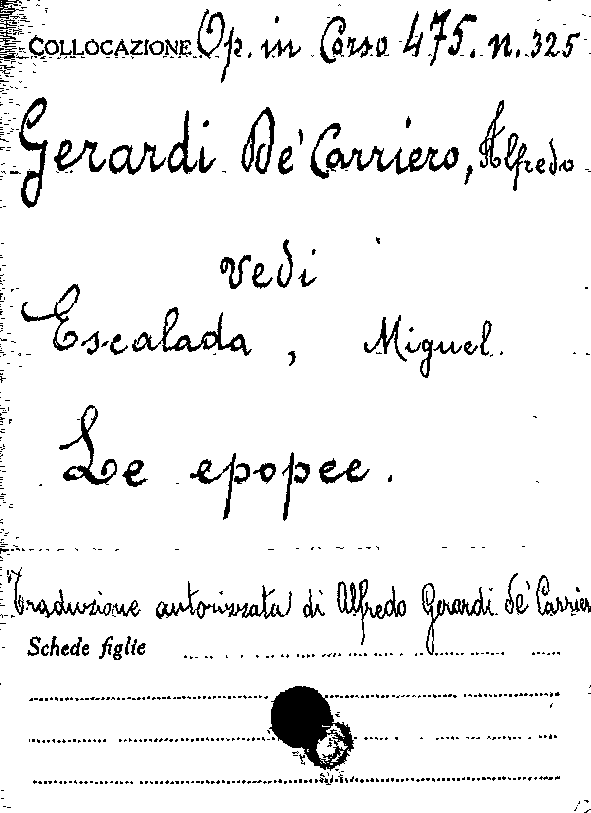 COLLOCAZIONE Op. in Corso 475. n. 325
Gerardi De' Carriero, Alfredo
vedi
Escalada, Miguel.
Le epopee.
Traduzione autorizzata di Alfredo Gerardi de' Carrier
Schede figlie